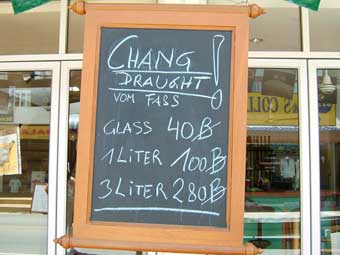 CHANG!
DRAUGHT
VOM FASS
GLASS 40฿
1 LITER 100฿
3 LITER 280฿